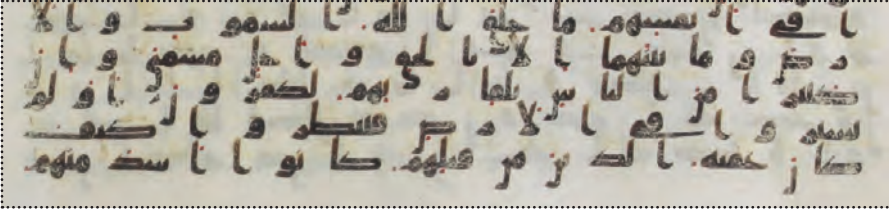 ا في انفسهم ما خلق الله السموت والا
رض وما بينهما الا بالحق واجل مسمى وان
كثيرا من الناس بلقا ربهم لكفرون اولم
يسيروا في الارض فينظروا كيف
كان عقبه الذين من قبلهم كانوا اشد منهم